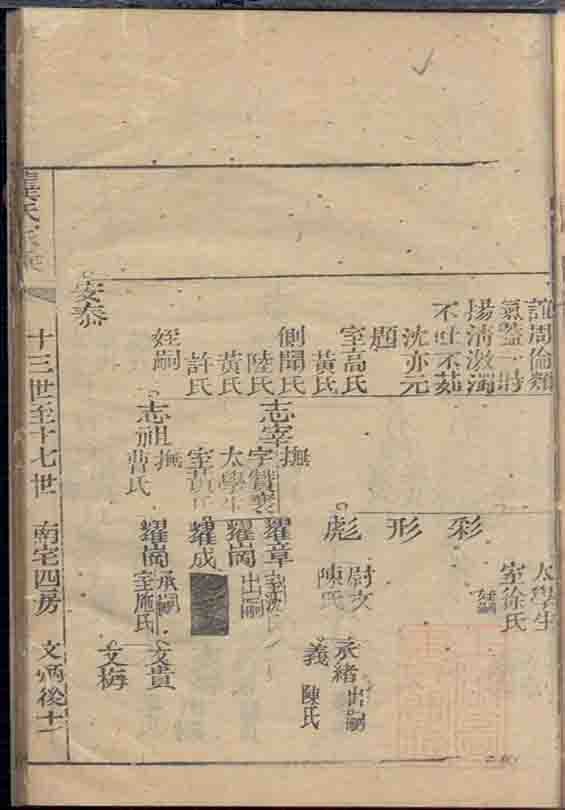 誼周倫類
氣蓋一時
揚清激濁
不吐不茹
沈亦元
題
室高氏
黃氏
側聞氏
陸氏
黃氏
許氏
姪嗣
安泰
志宰
撫
太學生
室黃氏
志祖
撫
曹氏
太學生
室徐氏
彩
形
彪
尉文
陳氏
耀章
耀崗
出嗣
耀成
耀崗
承嗣
室施氏
承緒
出嗣
義
陳氏
文貴
文梅
十三世至十七世
南宅四房
文炳後十一